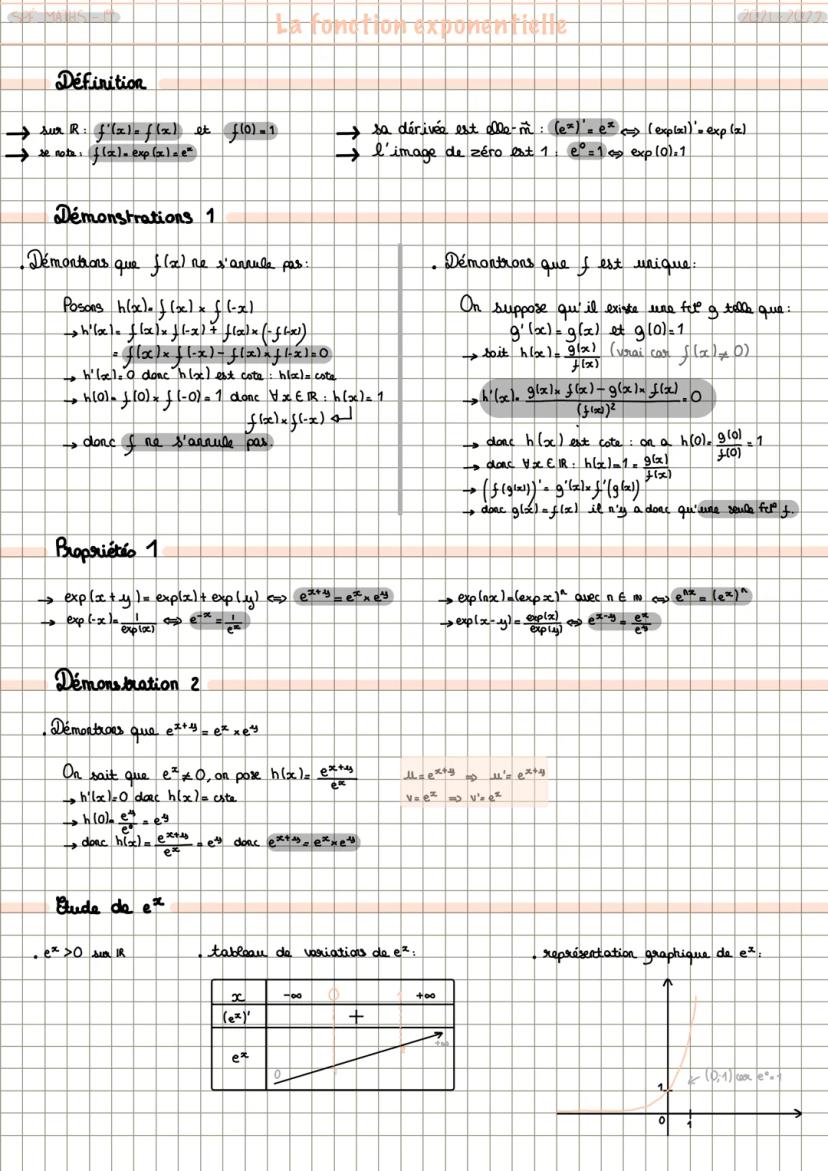 SPÉ MATHS - M
La fonction exponentielle
2021-2022
Définition
→ sur ℝ : f'(x) = f(x) et f(0) = 1
→ se note : f(x) = exp(x) = eˣ
→ sa dérivée est elle-m̂ : (eˣ)' = eˣ ⇔ (exp(x))' = exp(x)
→ l'image de zéro est 1 : e⁰ = 1 ⇔ exp(0) = 1
Démonstrations 1
. Démontrons que f(x) ne s'annule pas :
Posons h(x) = f(x) × f(-x)
→ h'(x) = f(x) × f(-x) + f(x) × (-f(-x))
= f(x) × f(-x) - f(x) × f(-x) = 0
→ h'(x) = 0 donc h(x) est cste : h(x) = cste
→ h(0) = f(0) × f(-0) = 1 donc ∀x ∈ ℝ : h(x) = 1
f(x) × f(-x) ↲
→ donc f ne s'annule pas.
. Démontrons que f est unique :
On suppose qu'il existe une fctᵒ g telle que :
g'(x) = g(x) et g(0) = 1
→ soit h(x) = g(x)/f(x) (vrai car f(x) ≠ 0)
→ h'(x) = (g(x) × f(x) - g(x) × f(x))/(f(x))² = 0
→ donc h(x) est cste : on a h(0) = g(0)/f(0) = 1
→ donc ∀x ∈ ℝ : h(x) = 1 = g(x)/f(x)
→ (f(g(x)))' = g'(x) × f'(g(x))
→ donc g(x) = f(x) il n'y a donc qu'une seule fctᵒ f.
Propriétés 1
→ exp(x + y) = exp(x) + exp(y) ⇔ eˣ⁺ʸ = eˣ × eʸ
→ exp(-x) = 1/exp(x) ⇔ e⁻ˣ = 1/eˣ
→ exp(nx) = (exp x)ⁿ avec n ∈ ℕ ⇔ eⁿˣ = (eˣ)ⁿ
→ exp(x-y) = exp(x)/exp(y) ⇔ eˣ⁻ʸ = eˣ/eʸ
Démonstration 2
. Démontrons que eˣ⁺ʸ = eˣ × eʸ
On sait que eˣ ≠ 0, on pose h(x) = eˣ⁺ʸ/eˣ
→ h'(x) = 0 donc h(x) = cste
→ h(0) = eʸ/e⁰ = eʸ
→ donc h(x) = eˣ⁺ʸ/eˣ = eʸ donc eˣ⁺ʸ = eˣ × eʸ
u = eˣ⁺ʸ ⇒ u' = eˣ⁺ʸ
v = eˣ ⇒ v' = eˣ
Étude de eˣ
. eˣ > 0 sur ℝ
. tableau de variations de eˣ :
x -∞ 0 1 +∞
(eˣ)' +
eˣ 0 +∞
. représentation graphique de eˣ :
(0;1) car e⁰ = 1
1
0 1